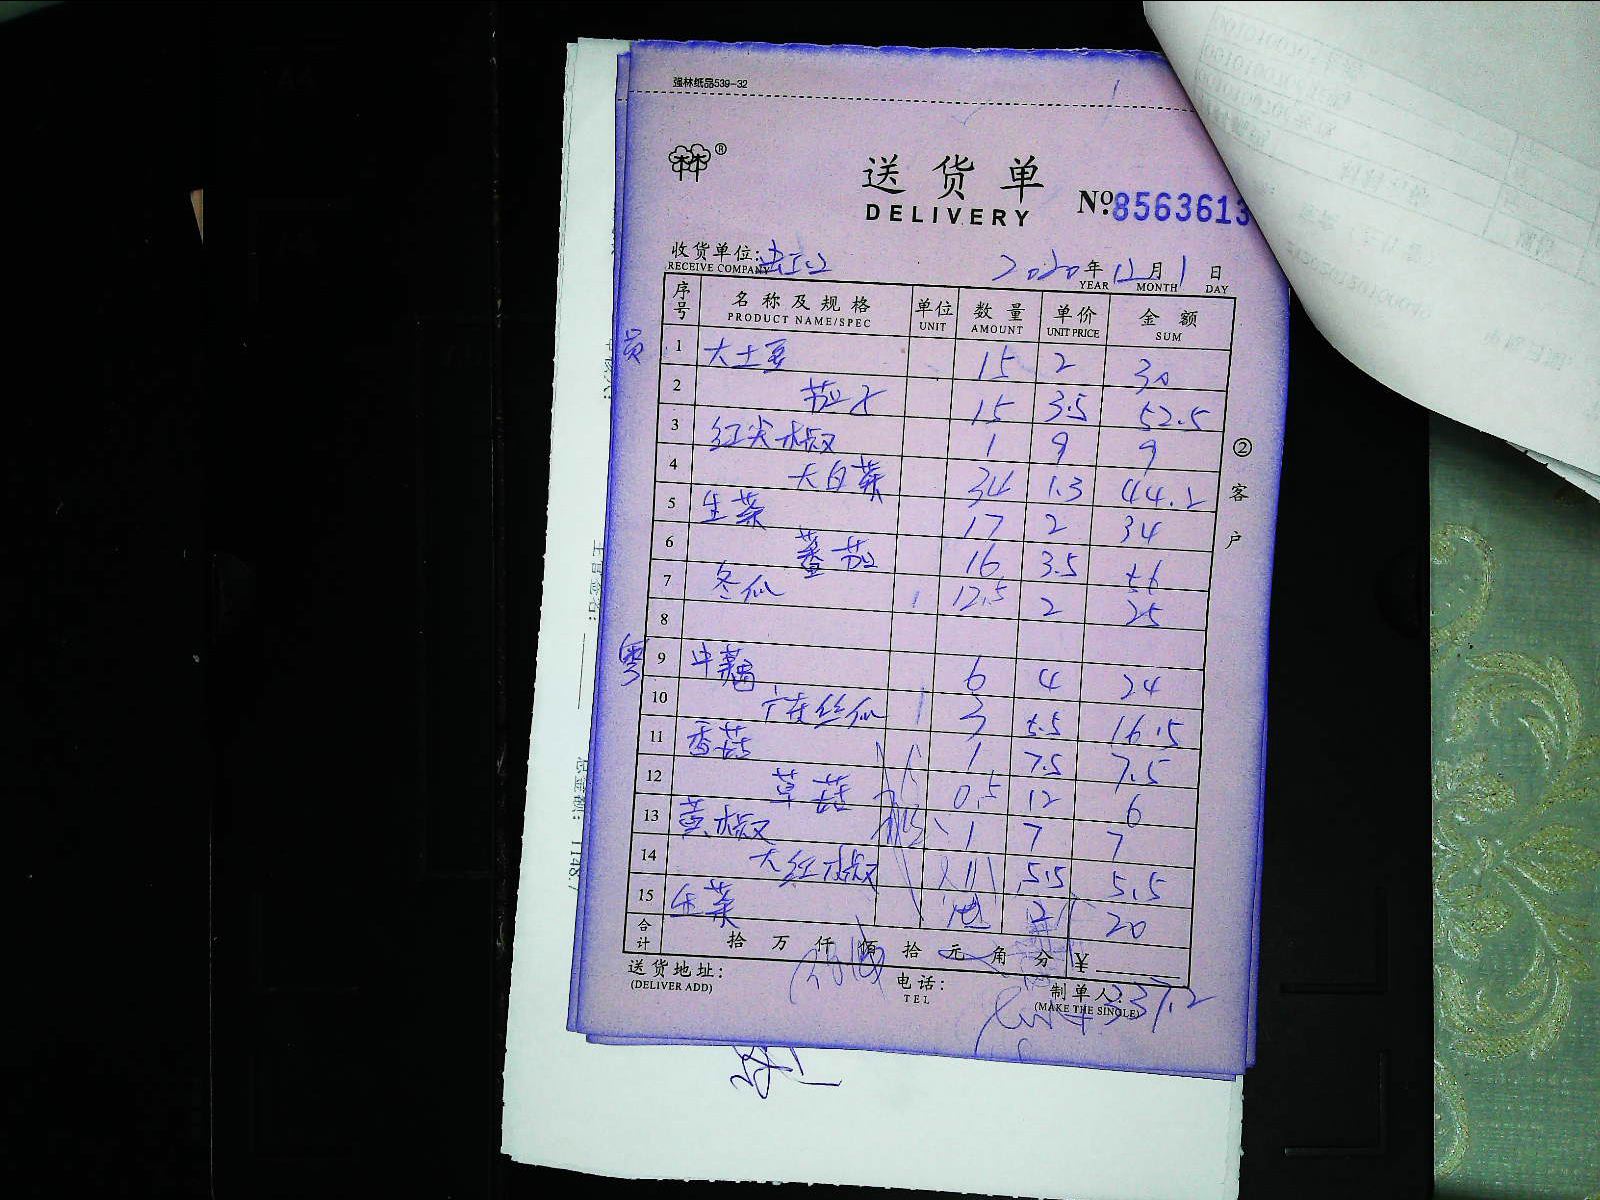 强林纸品539-32
®
送货单
DELIVERY
No: 8563613
收货单位:
RECEIVE COMPANY
2020年12月1日
YEAR MONTH DAY
序号 名称及规格 单位 数量 单价 金额
PRODUCT NAME/SPEC UNIT AMOUNT UNIT PRICE SUM
员
1 大土豆 15 2 30
2 茄子 15 3.5 52.5
3 红尖椒 1 9 9
4 大白菜 34 1.3 44.2
5 生菜 17 2 34
6 蕃茄 16 3.5 56
7 冬瓜 12.5 2 25
8
9 中藕 6 4 24
10 广东丝瓜 3 5.5 16.5
11 香菇 1 7.5 7.5
12 草菇 0.5 12 6
13 黄椒 1 7 7
14 大红椒 1 5.5 5.5
15 生菜 20
合计 拾万仟佰拾元角分 ¥
337.2
送货地址:
(DELIVER ADD)
电话:
TEL
制单人:
(MAKE THE SINGLE)
②客户
总金额: 1148.7